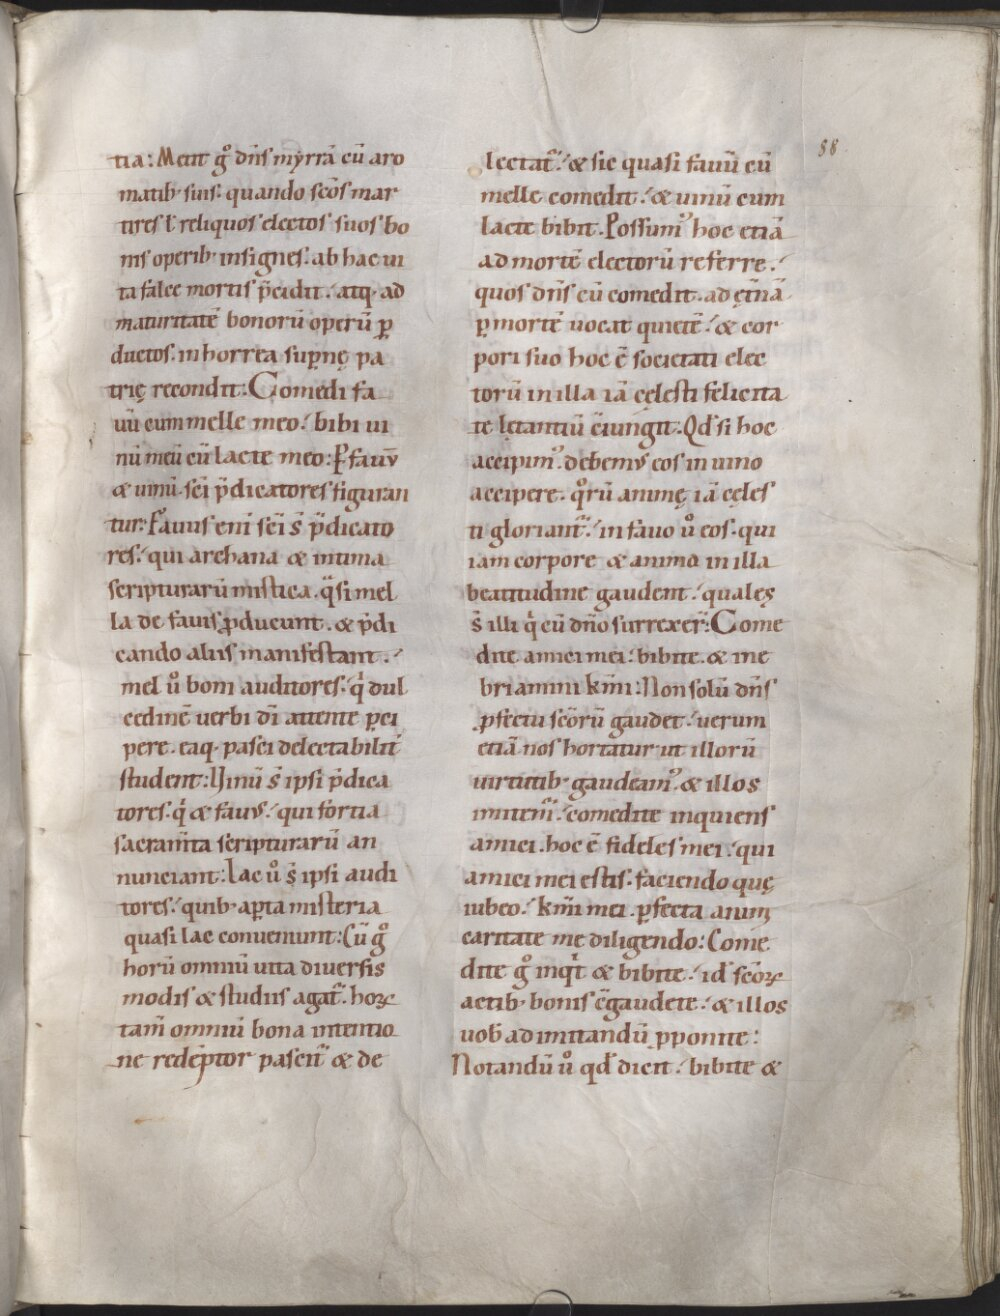 88
tia: Metit g͛ dn̄s myrrā cū aro
matib; suis. quando sc̄os mar
tires ł reliquos electos suos bo
nis operib; insignes. ab hac ui
ta falce mortis p̄cidit. atq; ad
maturitatē bonorū operū ꝑ
ductos. in horrea sup̄nę pa
trię recondit. Comedi fa
uū cum melle meo. bibi ui
nū meū cū lacte meo: Ꝑ fauū
& uinū. sc̄i p̄dicatores figuran
tur: Fauus eni̅ sc̄i s̄ p̄dicato
res. qui archana & intima
scripturarū mistica. qͣsi mel
la de fauis ꝓducunt. & p̄di
cando aliis manifestant.
mel u͛o boni auditores. qͥ dul
cedinē uerbi dī attente ꝑci
pere. eaq; pasci delectabilit̄
student: Uinū s̄ ipsi p̄dica
tores. qͥ & fauꝰ. qui fortia
sacram̅ta scripturarū an
nunciant: Lac u͛o s̄ ipsi audi
tores. quib; aꝑta misteria
quasi lac conueniunt: Cū g͛
horū omniū uita diuersis
modis & studiis agat᷑. hoꝝ
tam̄ omniū bona intentio
ne redēptor pascit᷑ & de
lectat᷑. & sic quasi fauū cū
melle comedit. & uinū cum
lacte bibit. Possumꝰ hoc etiā
ad mortē electorū referre.
quos dn̄s cū comedit. ad ęt̄nā
ꝑ mortē uocat quietē. & cor
pori suo hoc ē societati elec
torū in illa iā cęlesti felicita
te lętantiū c̄iungit. Qd̄ si hoc
accipimꝰ. debemꝰ eos in uino
accipere. qͦrū animę iā cęles
ti gloriant᷑. in fauo u͛o eos. qui
iam corpore & anima in illa
beatitudine gaudent. quales
s̄ illi qͥ cū dn̄o surrexer̄: Come
dite amici mei. bibite. & ine
briamini km̄i: Non solū dn̄s
ꝓfectu sc̄orū gaudet. uerum
etiā nos hortatur ut illorū
uirtutib; gaudeamꝰ. & illos
imitem᷑. comedite inquiens
amici. hoc ē fideles mei. qui
amici mei estis. faciendo quę
iubeo. km̄i mei. ꝑfecta animi
caritate me diligendo: Come
dite g͛ inqͥt & bibite. id̄ sc̄oꝝ
actib; bonis c̄gaudete. & illos
uob̄ ad imitandū ꝓponite:
Notandū u͛o qd̄ dicit. bibite &